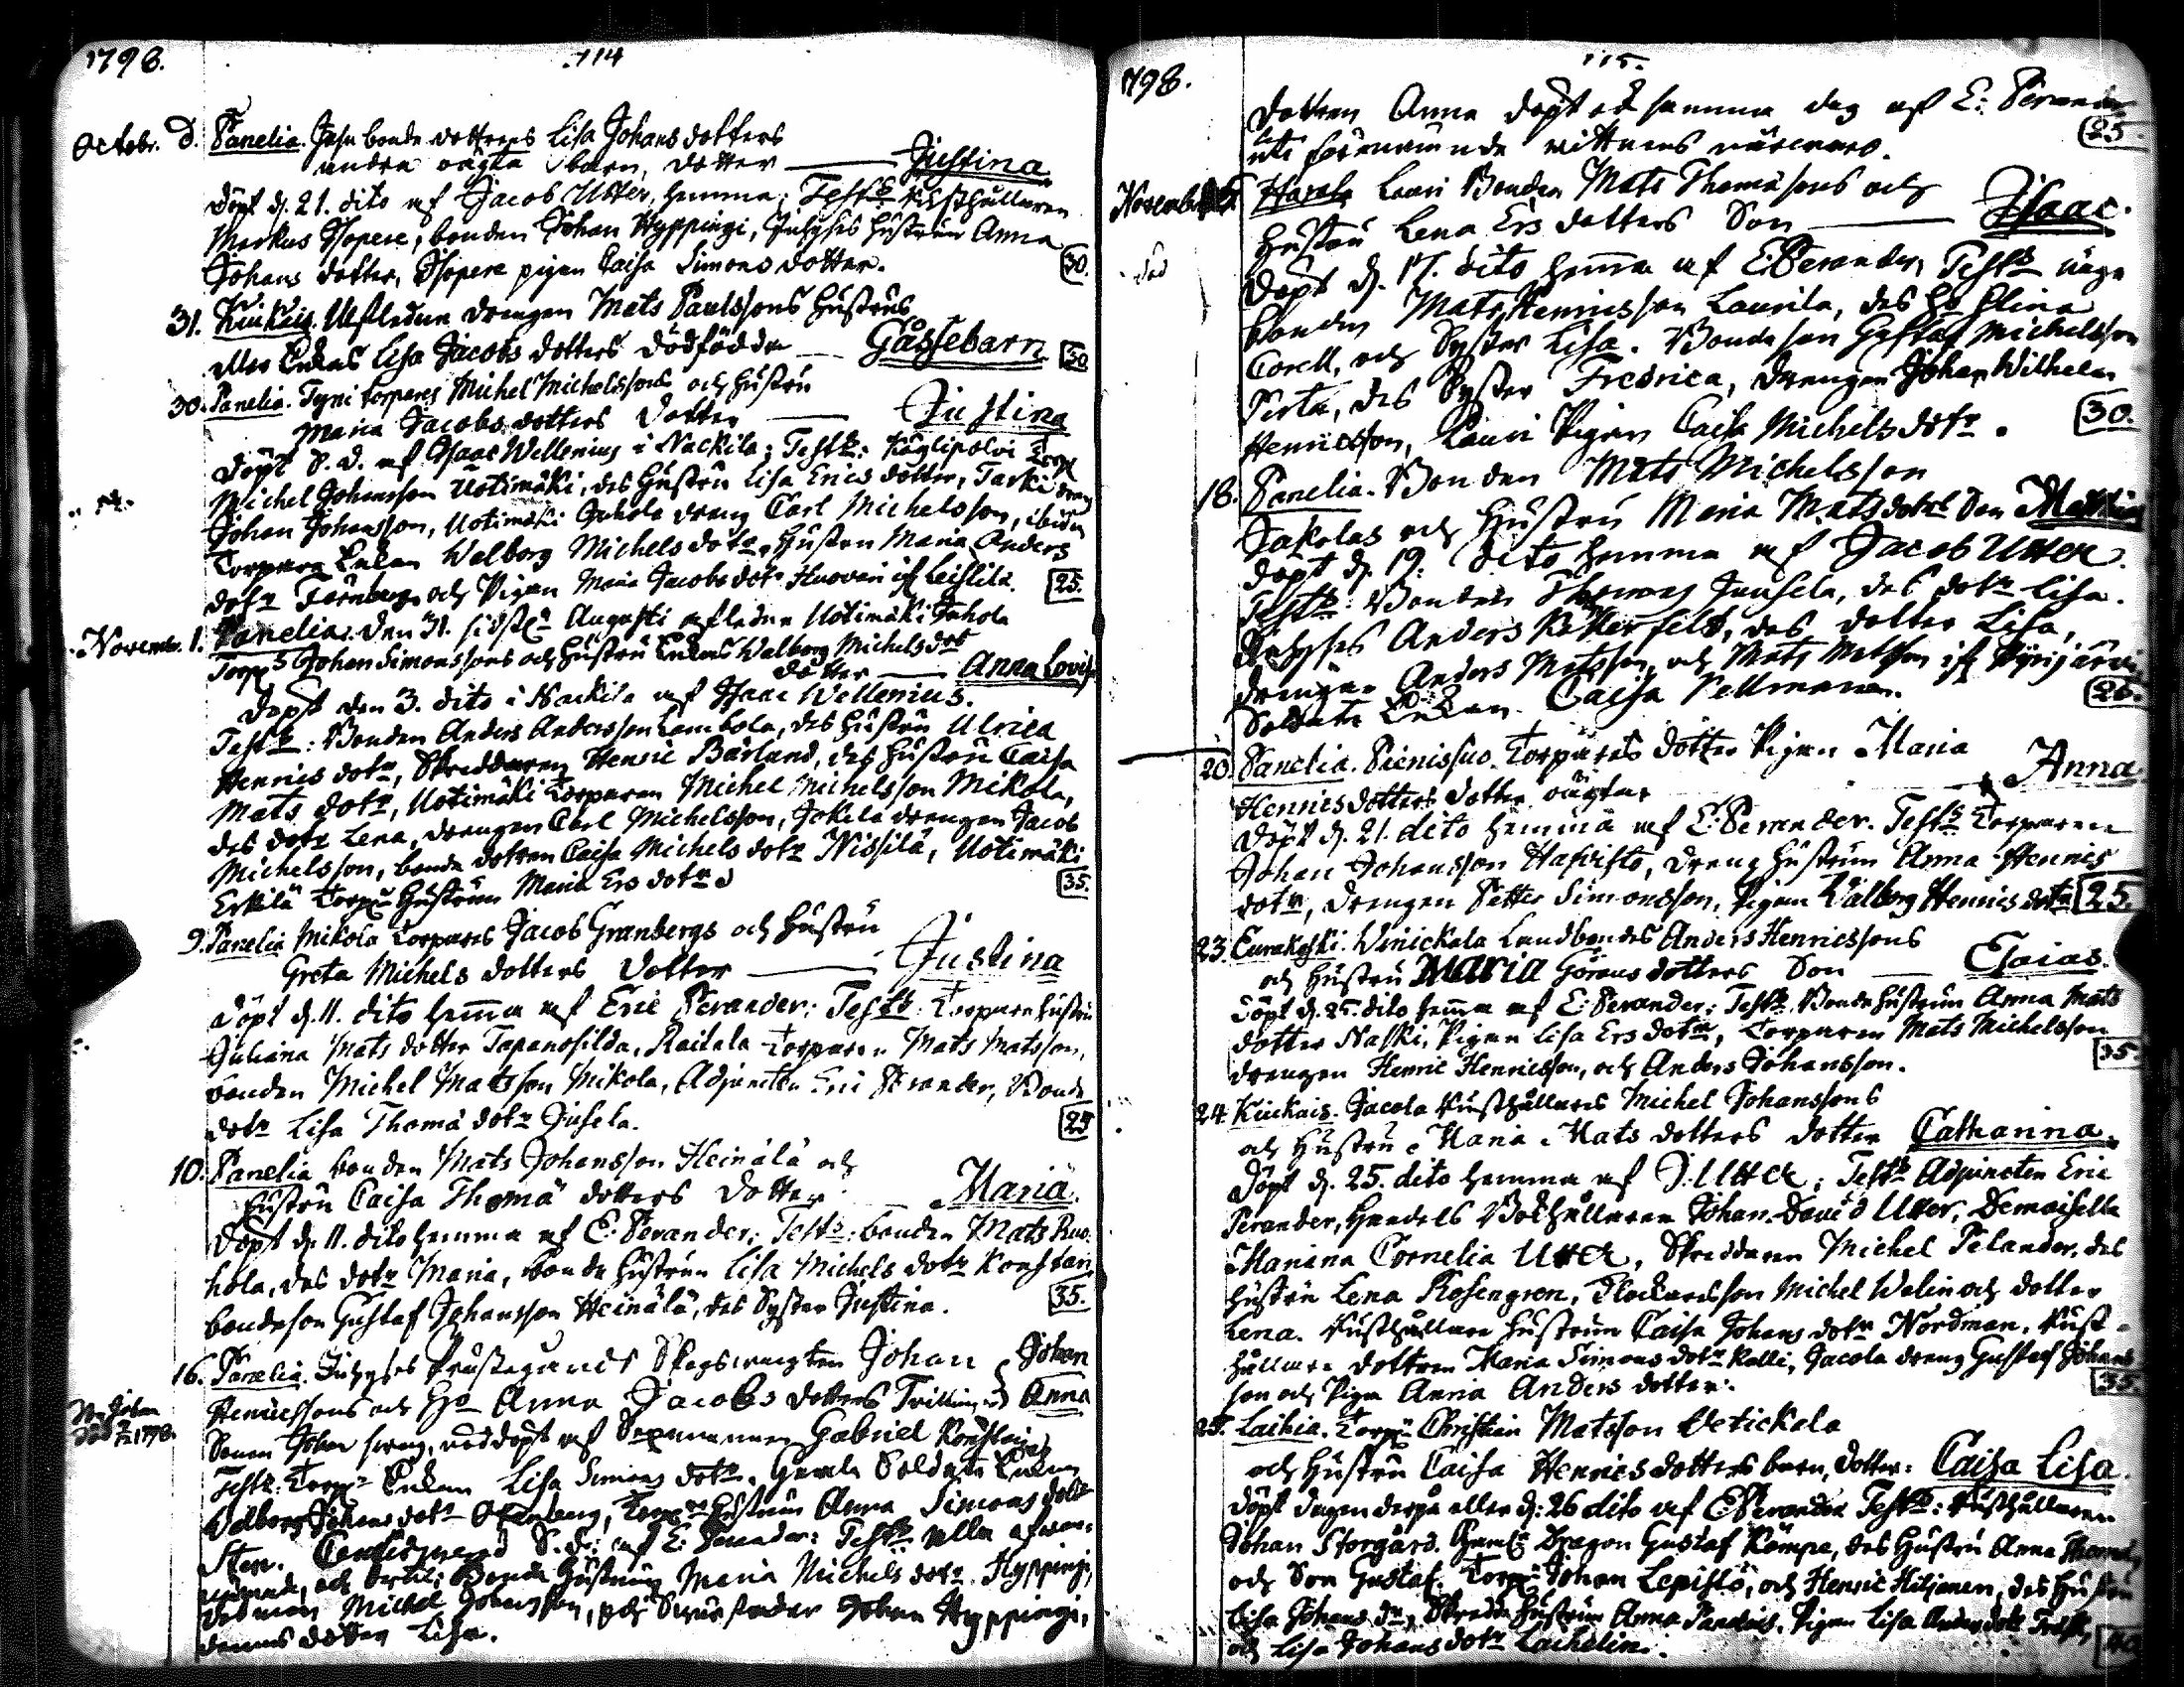 1798.
114
Octobr. D. Panelia. Juhu bonde dottrens Lisa Johans dotters
andra oägta barn, dotter — Justina
döpt d. 21. dito af Jacob Utter, hemma; Test: Rusthållaren
Markus Isopere, bonden Johan Hyppingi, hustrun Anna
Johans dotter, Isopere pigan Caisa Simons dotter.
30.
31. Kiukais. Afledne drengen Mats Paulssons hustrus
eller Enkas Lisa Jacobs dotters dödfödda — Gåssebarn
30
30. Panelia. Tyni torpares Michel Michelssons och hustru
Maria Jacobs dotters dotter — Justina
döpt S. D. af Isaac Wellenius i Nackila; Test: Käylipolvi
Michel Johansson Uotimäki, des hustru Lisa Erics dotter, Tarki dreng
Johan Johansson, Uotimäki Juhola dreng Carl Michelsson,
Torpare Enkan Walborg Michels dotr, hustru Maria Anders
dotr Tärnberg och Pigan Maria Jacobs dotr Huovari ifr Leistilä.
25.
Novemb. 1. Panelia. Den 31. sidstl. Augusti aflednes Uotimäki Juhola
Torps Johan Simonssons och hustru Enkas Walborg Michels dotr
dotter — Anna Lovisa
Döpt den 3. dito i Nackila af Isaac Wellenius.
Test: Bonden Anders Andersson Lambola, des hustru Ulrica
Henrics dotr, Skreddaren Henric Bärlund, des hustru Caisa
Mats dotr, Uotimäki Torparen Michel Michelsson Mikola,
des dotr Lena, drengen Carl Michelsson, Jokela drengen Jacob
Michelsson, bonde dottren Caisa Michels dotr Nissilä, Uotimäki
Erkilä Torp hustrun Maria Ers dotr
35.
9. Panelia Mikola torpares Jacob Granbergs och hustru
Greta Michels dotters dotter — Justina
döpt d. 11. dito hema af Eric Perander: Test: Torpare hustru
Juliana Mats dotter Tapanosilda, Raitala Torparen Mats Matsson,
bonden Michel Matsson Mikola, Adjuncten Eric Perander, Bonde
dotr Lisa Thomä dotr Jusela.
25
10. Panelia bonden Mats Johansson Heinälä och
hustru Caisa Thomä dotters dotter — Maria.
döpt d. 11. dito hemma af E. Perander: Test: bonden Mats Ruo-
hola, des dotr Maria, bonde hustrun Lisa Michels dotr Konstari
bondeson Gustaf Johansson Heinälä, des Syster Justina.
35.
16. Panelia. Skogswagten Johan Johan
Henricssons och ho Anna Jacobs dotters Tvillingar Anna
N. Johan
död 1798.
Sonen Johan svag, nöddöpt af Sexmannen Gabriel
Test: Torp Enkan Lisa Simons dotr, gamla Soldate Enkan
Walborg Johans dotr Stenberg, Torp hustrun Anna Simons dotr
Sten. S. d. af E. Perander: Test: alla ofvan-
nämnde, och Bonde hustrun Maria Michels dotr Hyppingi,
des man Michel Johansson, och Johan Hyppingi,
dennes dotter Lisa.
1798.
115.
dottren Anna döpt samma dag af E. Perander
uti förenämnde vittnens närwaro.
25.
Novemb. Harola Lauri Bonden Mats Thomäsons och
hustru Lena Ers dotters Son — Isaac.
död
döpt d. 17. dito hema af E. Perander, Test:
bonden Mats Henricsson Laurila, des ho Stina
Corell, och Syster Lisa. Bonde son Gustaf Michelsson
Perta, des Syster Fredrica, drengen Johan Wilhelm
Henricsson, Lauri Pigan Caisa Michels dotr.
30.
18. Panelia. Bonden Mats Michelsson
Jakolas och hustru Maria Mats dotrs Son Matthias
döpt d. 19. dito hemma af Jacob Utter.
Test: Bonden Thomas Juusela, des dotr Lisa.
Anders Kellerfelt, des dotter Lisa,
drengen Anders Matsson, och Mats Matsson ifr Pyhäjärvi
Soldate Enkan Caisa Pellman.
26.
20. Panelia. Pienissuo Torpares dotter Pigan Maria
Henrics dotters dotter oägta — Anna
döpt d. 21. dito hemma af E. Perander. Test: Torparen
Johan Johansson Hafvisto, dreng hustrun Anna Henrics
dotr, drengen Petter Simonsson, Pigan Walborg Henrics dotr
25.
23. Eurakoski. Winickala Landbondes Anders Henricssons
och hustru Maria Görans dotters Son — Esaias.
döpt d. 25. dito hema af E. Perander: Test: Bonde hustrun Anna Mats
dotter Naski, Pigan Lisa Ers dotr, Torparen Mats Michelsson
drengen Henric Henricsson, och Anders Johansson.
35.
24. Kiukais. Jacola Rusthållares Michel Johanssons
och hustru Maria Mats dotters dotter Catharina.
döpt d. 25. dito hemma af J. Utter; Test: Adjuncten Eric
Perander, Handels Bokhållaren Johan David Utter, Demoiselle
Mariana Cornelia Utter, Skreddaren Michel Pelander, des
hustru Lena Rosengren, Klockareson Michel Welin och dotter
Lena. Rusthållare hustrun Caisa Johans dotr Nordman, Rust-
hållare dottren Maria Simons dotr Kalli, Jacola dreng Gustaf Johans
son och Pigan Anna Anders dotter.
35.
25. Laihia. Torp: Christian Matsson Uetickala
och hustru Caisa Henrics dotters barn, dotter: Caisa Lisa.
döpt dagen derpå eller d: 26 dito af E. Perander Test: Rusthållaren
Johan Storgård. Gamle Dragon Gustaf Kämpe, des hustru Anna
och Son Gustaf. Torp: Johan Lepistö, och Henric Hiljanen, des hustru
Lisa Johans dr, Skreddar hustrun Anna, Pigan Lisa Anders dotr
och Lisa Johans dotr
40